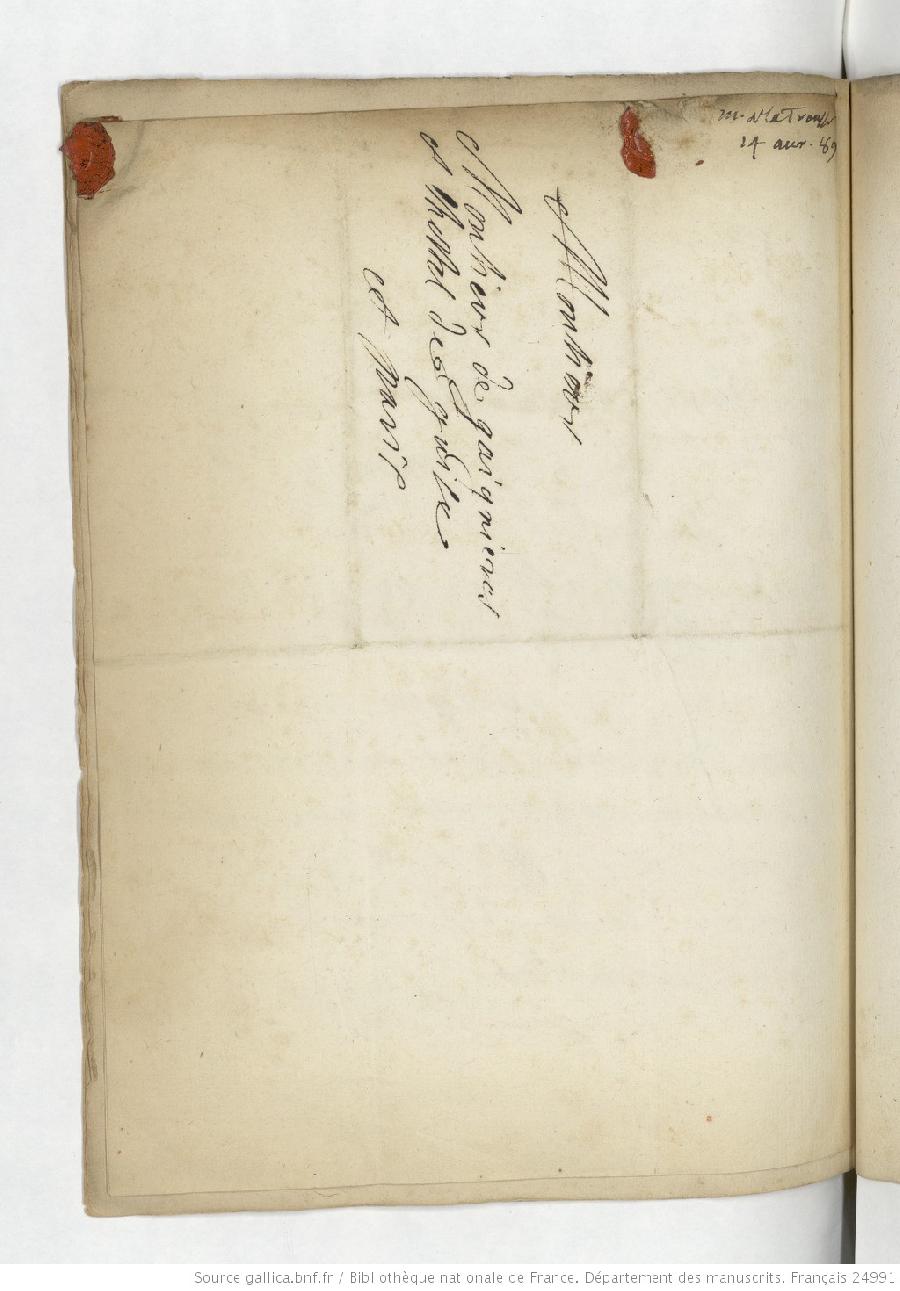 14 avr. 89
Monsieur
Monsieur de gaignieres
a lhostel de guise
a paris
Source gallica.bnf.fr / Bibliothèque nationale de France. Département des manuscrits. Français 24991